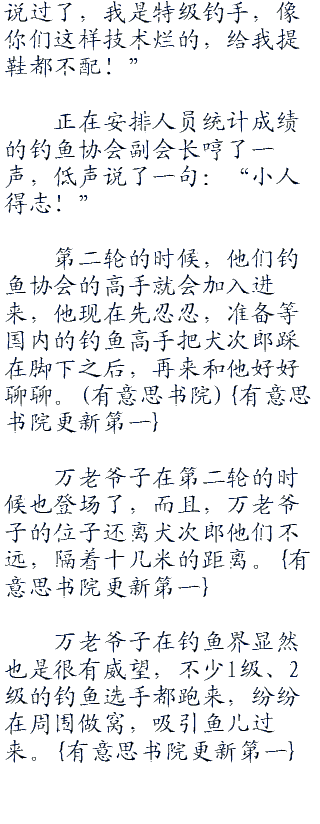 说过了，我是特级钓手，像
你们这样技术烂的，给我提
鞋都不配！”
正在安排人员统计成绩
的钓鱼协会副会长哼了一
声，低声说了一句：“小人
得志！”
第二轮的时候，他们钓
鱼协会的高手就会加入进
来，他现在先忍忍，准备等
国内的钓鱼高手把犬次郎踩
在脚下之后，再来和他好好
聊聊。(有意思书院) {有意思
书院更新第一}
万老爷子在第二轮的时
候也登场了，而且，万老爷
子的位子还离犬次郎他们不
远，隔着十几米的距离。{有
意思书院更新第一}
万老爷子在钓鱼界显然
也是很有威望，不少1级、2
级的钓鱼选手都跑来，纷纷
在周围做窝，吸引鱼儿过
来。{有意思书院更新第一}